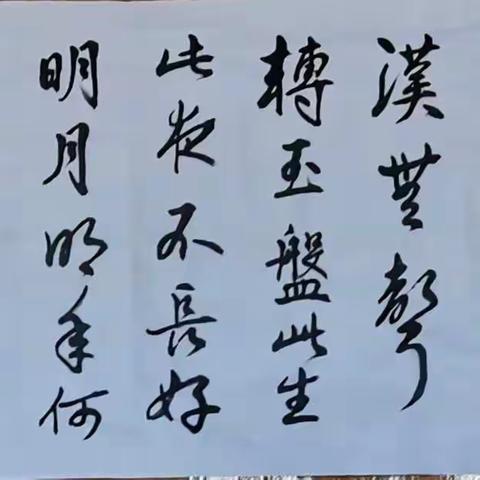 漢無聲
轉玉盤此生
此夜不長好
明月明年何